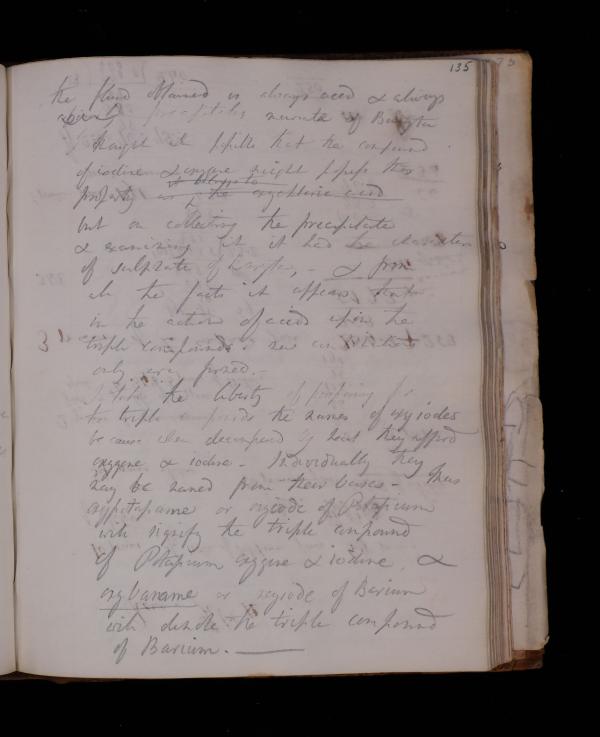 135
the fluid obtained is always acid & always
precipitates muriate of Baryta
I thought it possible that the compound
of iodine & oxygene might possess this
property as the oxyiodic acid
but on collecting the precipitate
& examining it it had the character
of sulphate of baryta, - & from
all the facts it appears that
in the action of acids upon the
triple compounds
only are formed. -
I take the liberty of proposing for
the triple compounds the names of oxyiodes
because when decomposed by heat they afford
oxygene & iodine - Individually they
may be named from their bases - Thus
oxypotassame or oxyiode of Potassium
will signify the triple compound
of Potassium oxygene & iodine, &
oxybaname or oxyiode of Barium
will denote the triple compound
of Barium.